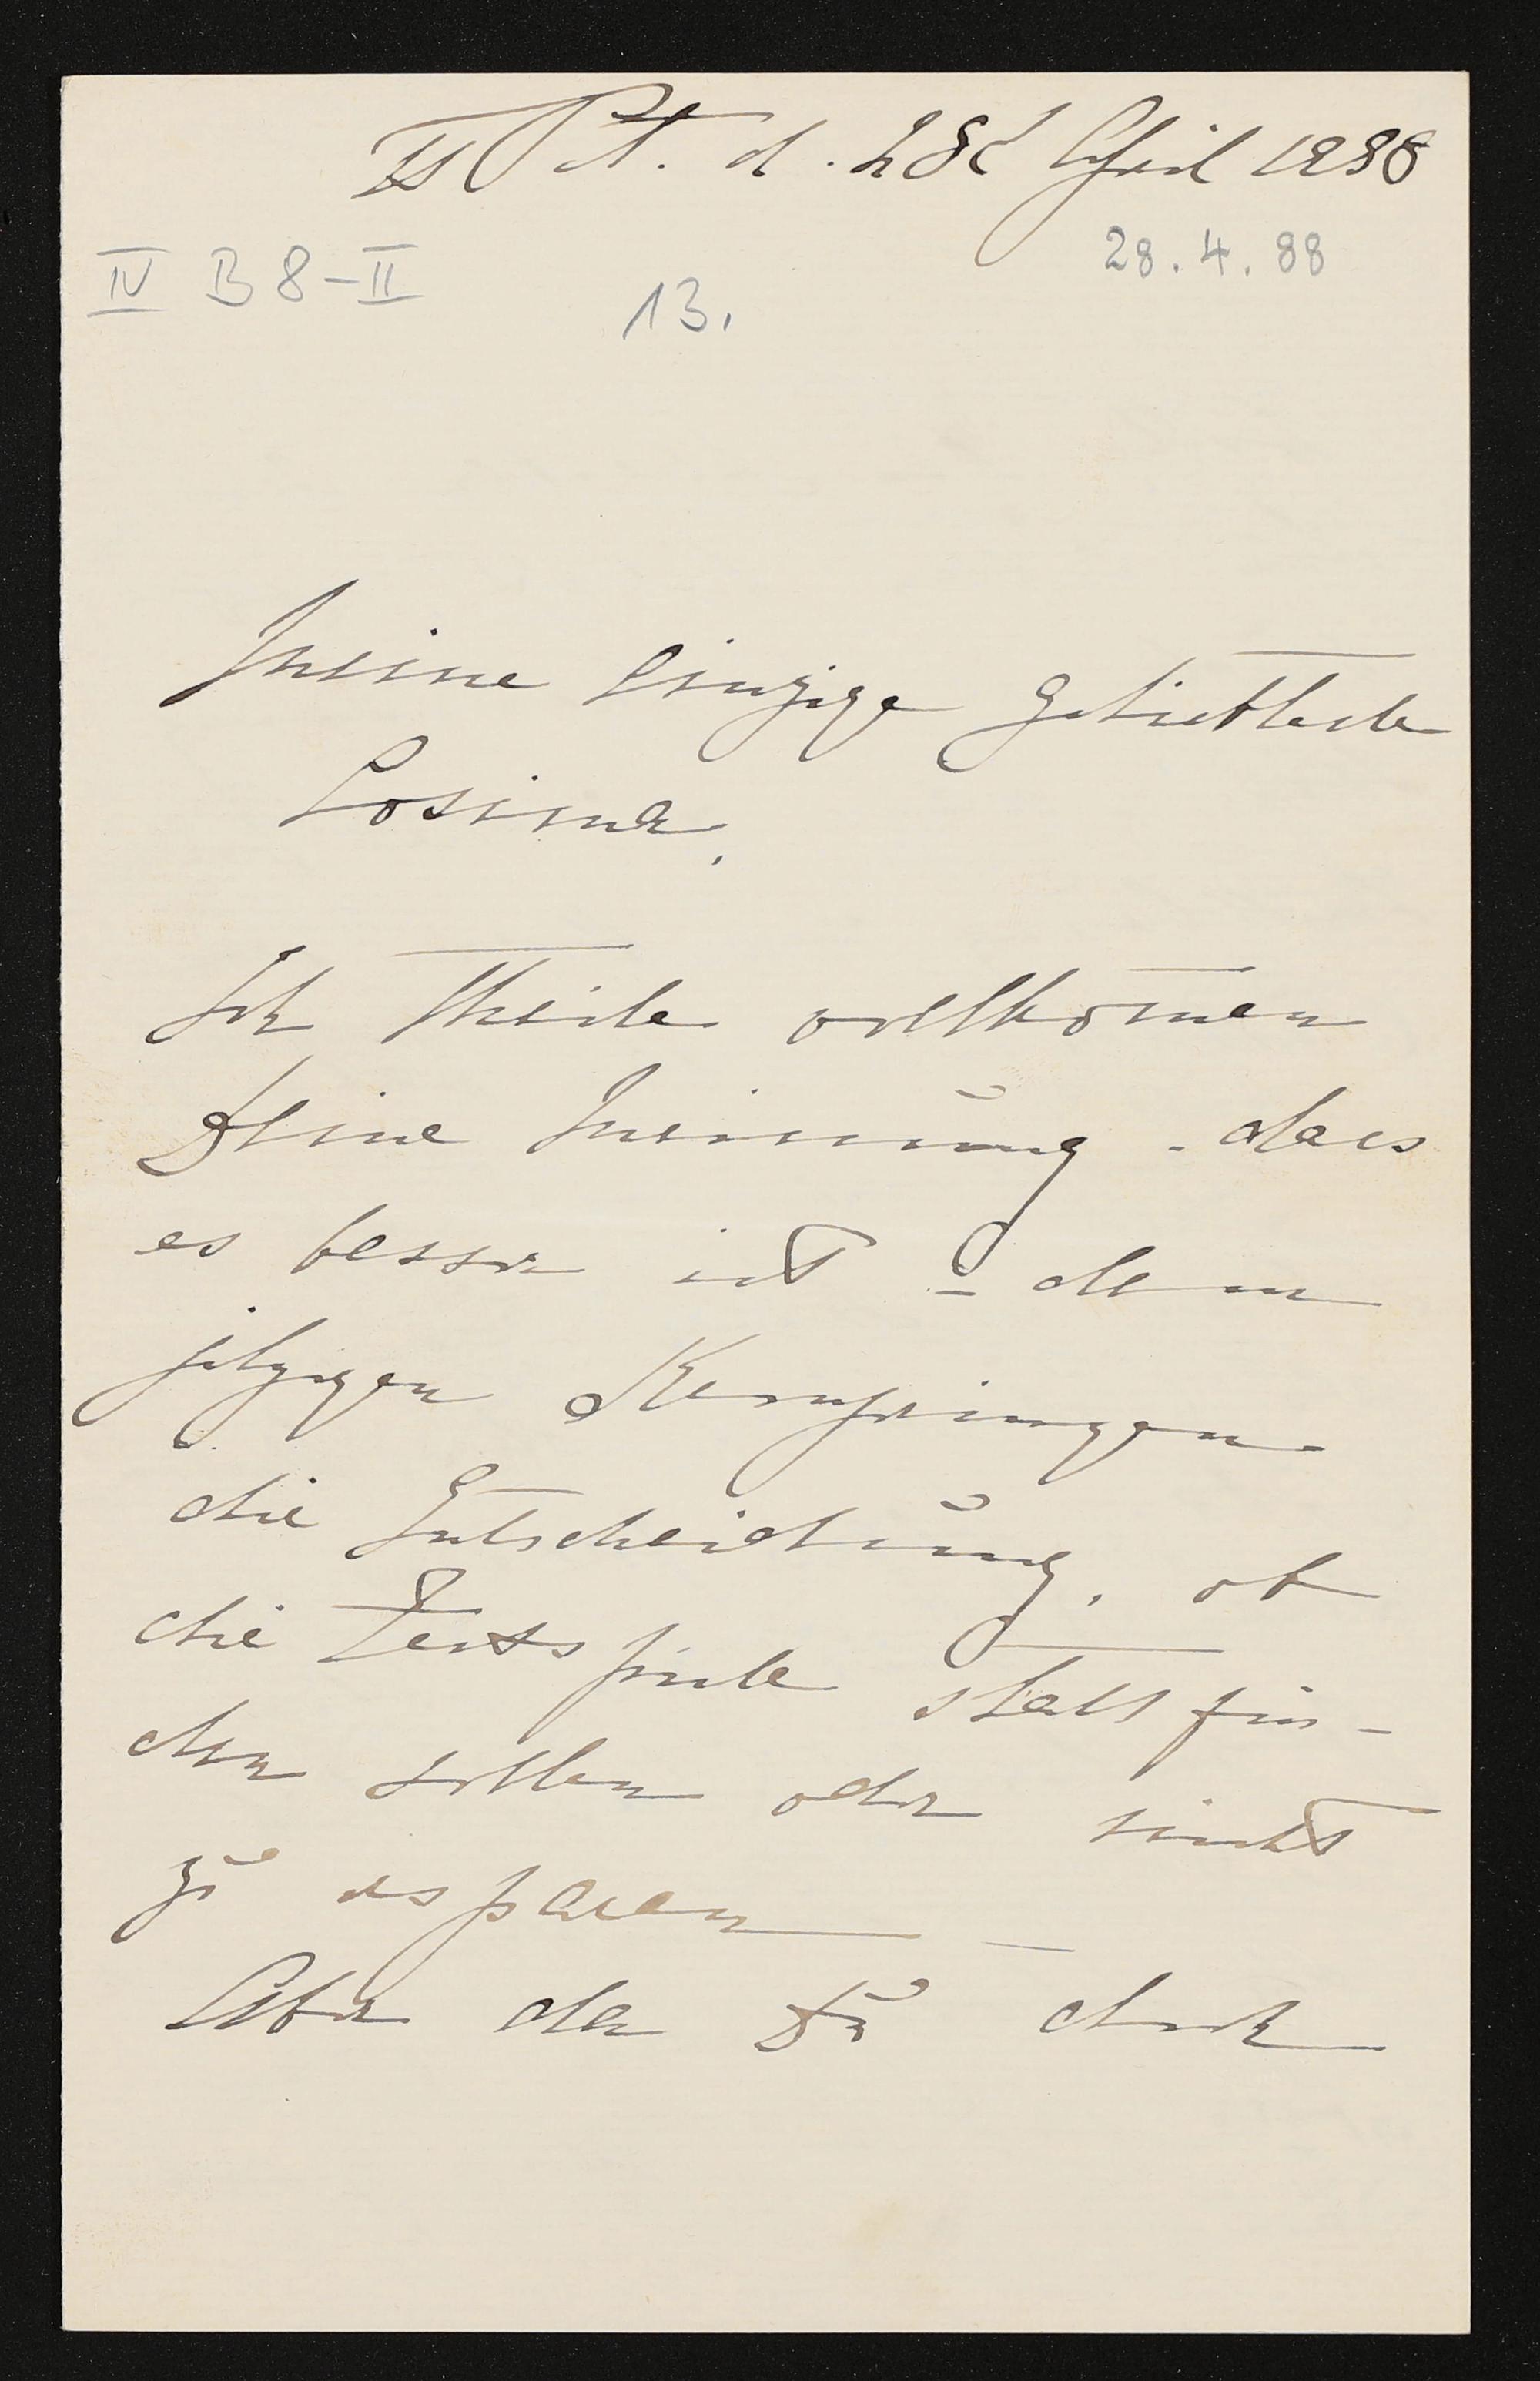 Pt. d. 28t April 1888
28.4.88
IV B 8-II
13.
Meine einzige geliebteste
Cosima,
Ich theile vollkom̄en
Deine Meinung. dass
es besser ist dem
jetzigen
die Entscheidung, ob
die Festspiele stattfin-
den sollen oder nicht
zu
Aber da Du doch